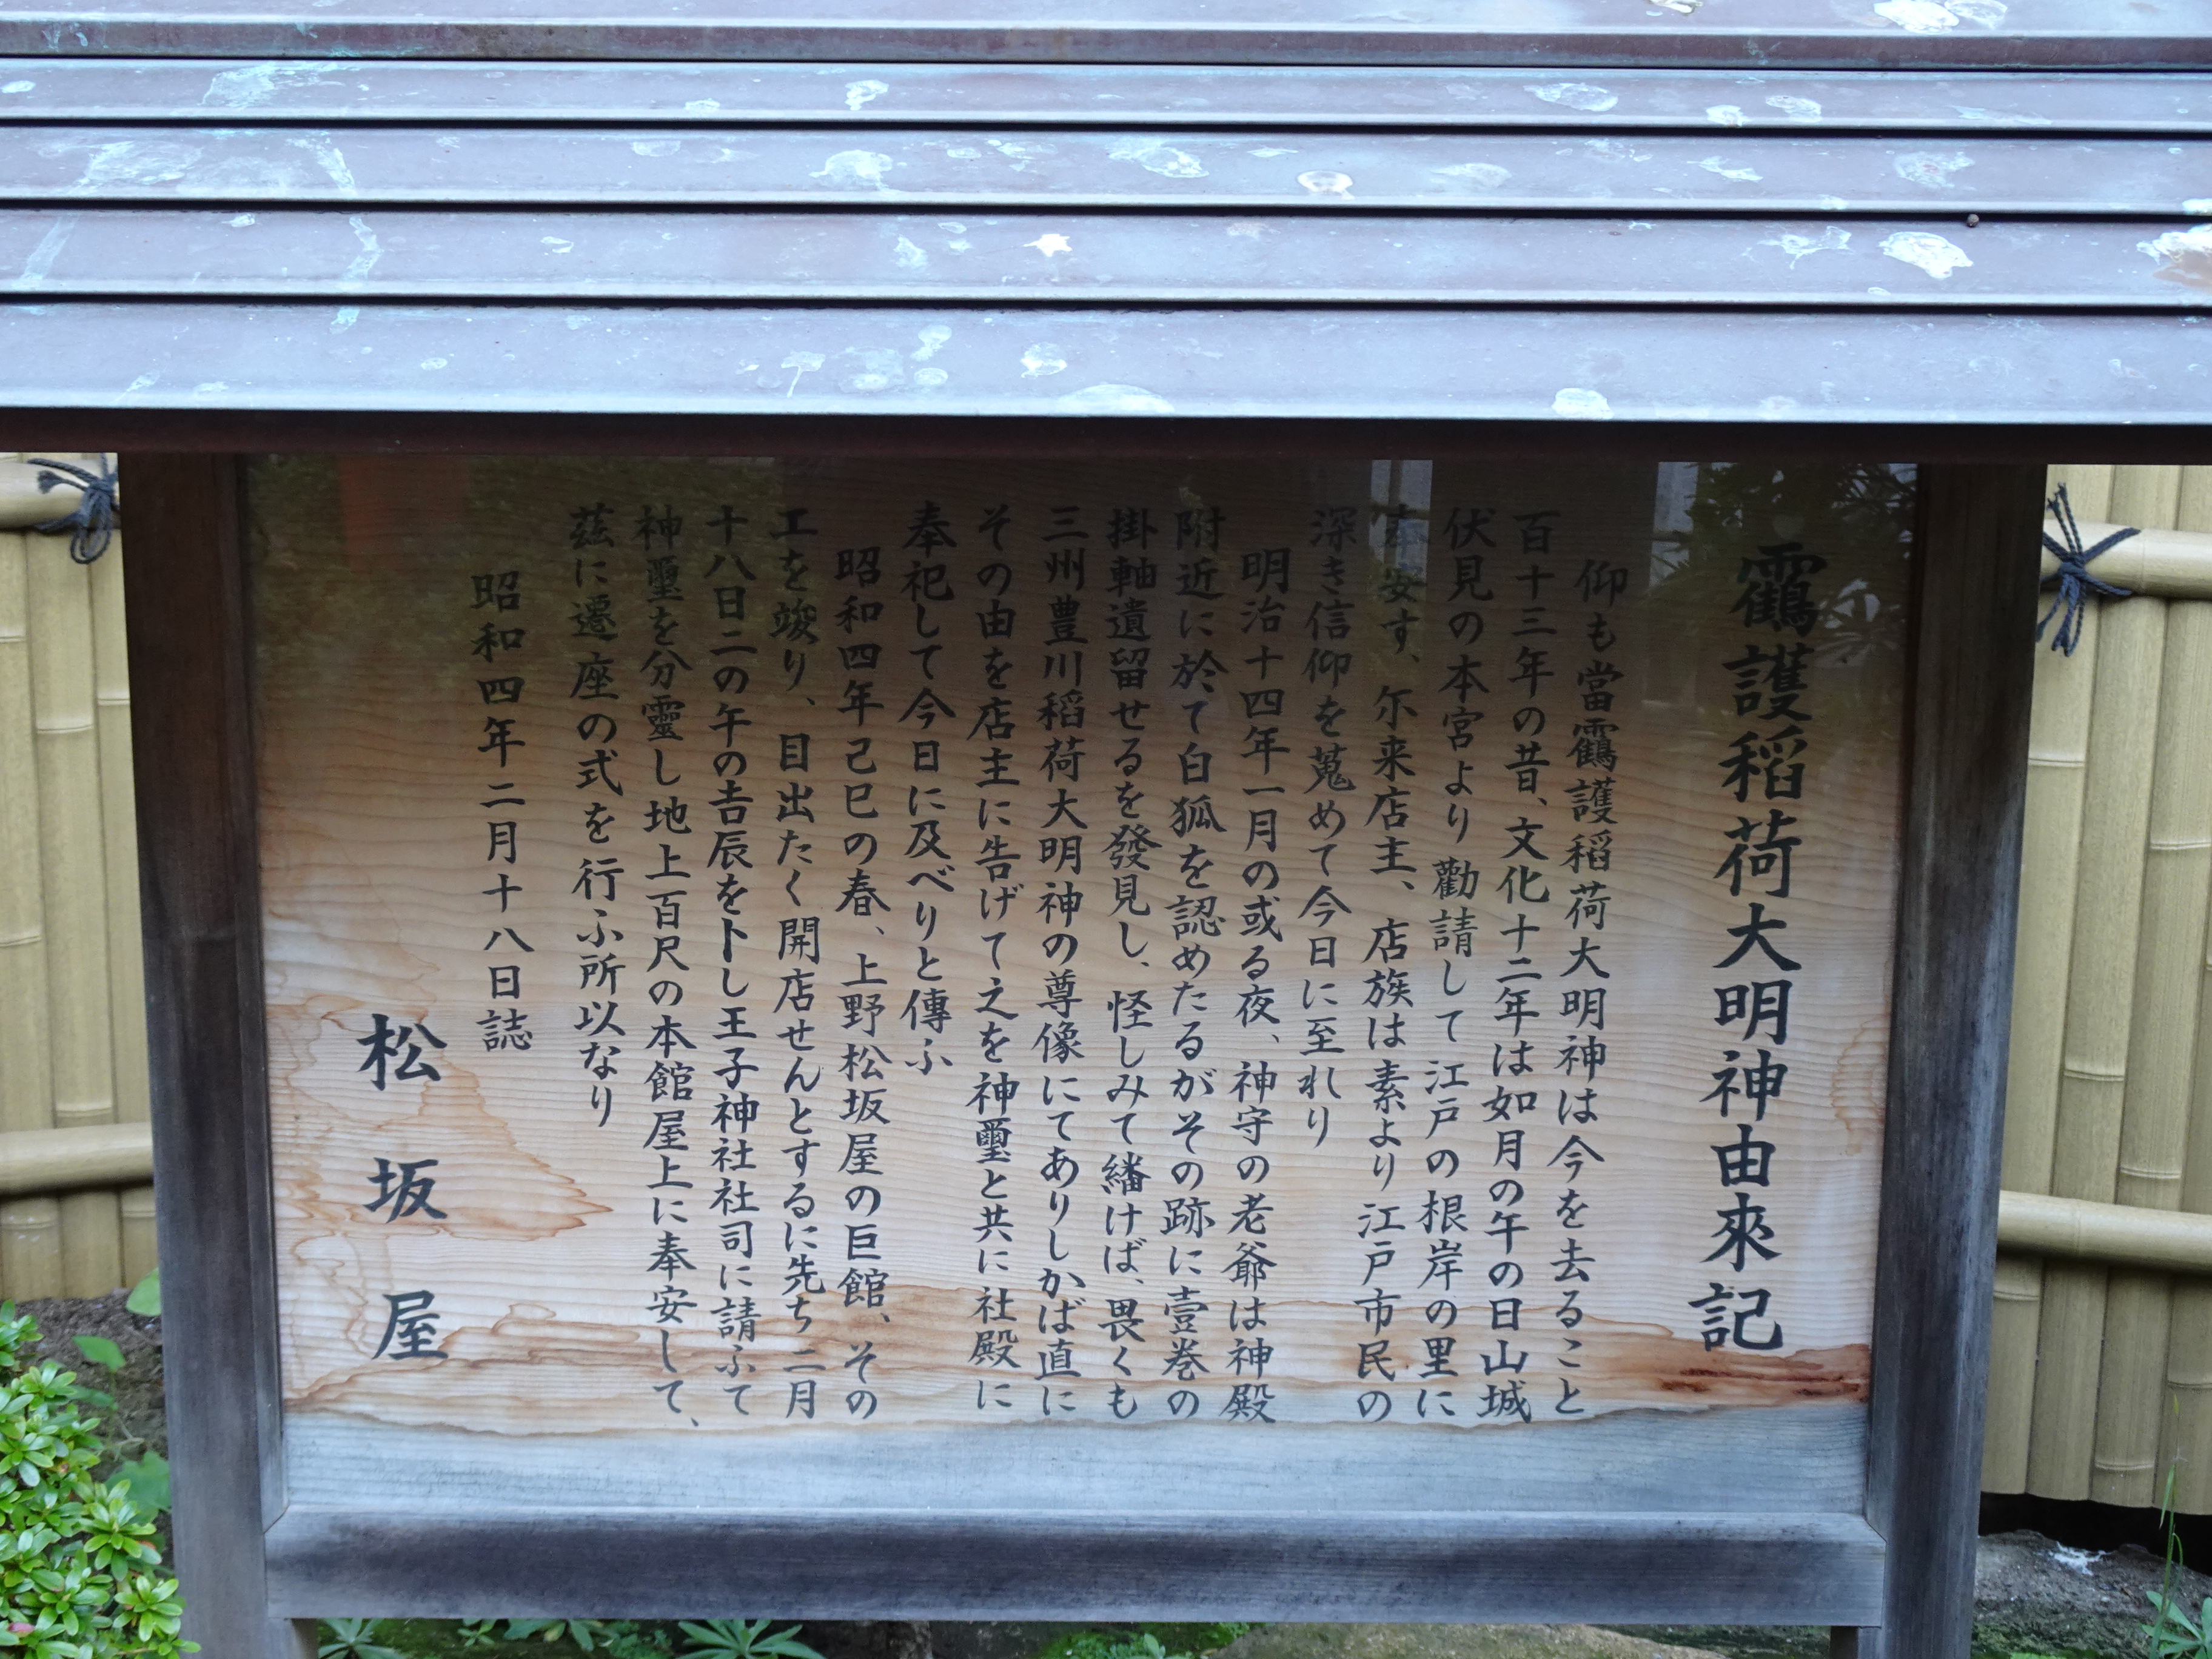 靍護稻荷大明神由來記
仰も當靍護稻荷大明神は今を去ること
百十三年の昔、文化十二年は如月の午の日山城
伏見の本宮より勸請して江戸の根岸の里に
奉安す、尓来店主、店族は素より江戸市民の
深き信仰を蒐めて今日に至れり
明治十四年一月の或る夜、神守の老爺は神殿
附近に於て白狐を認めたるがその跡に壹巻の
掛軸遺留せるを發見し、怪しみて繙けば、畏くも
三州豊川稻荷大明神の尊像にてありしかば直に
その由を店主に告げて之を神璽と共に社殿に
奉祀して今日に及べりと傳ふ
昭和四年己巳の春、上野松坂屋の巨館、その
工を竣り、目出たく開店せんとするに先ち二月
十八日二の午の吉辰を卜し王子神社社司に請ふて
神璽を分靈し地上百尺の本館屋上に奉安して、
茲に遷座の式を行ふ所以なり
昭和四年二月十八日誌
松坂屋